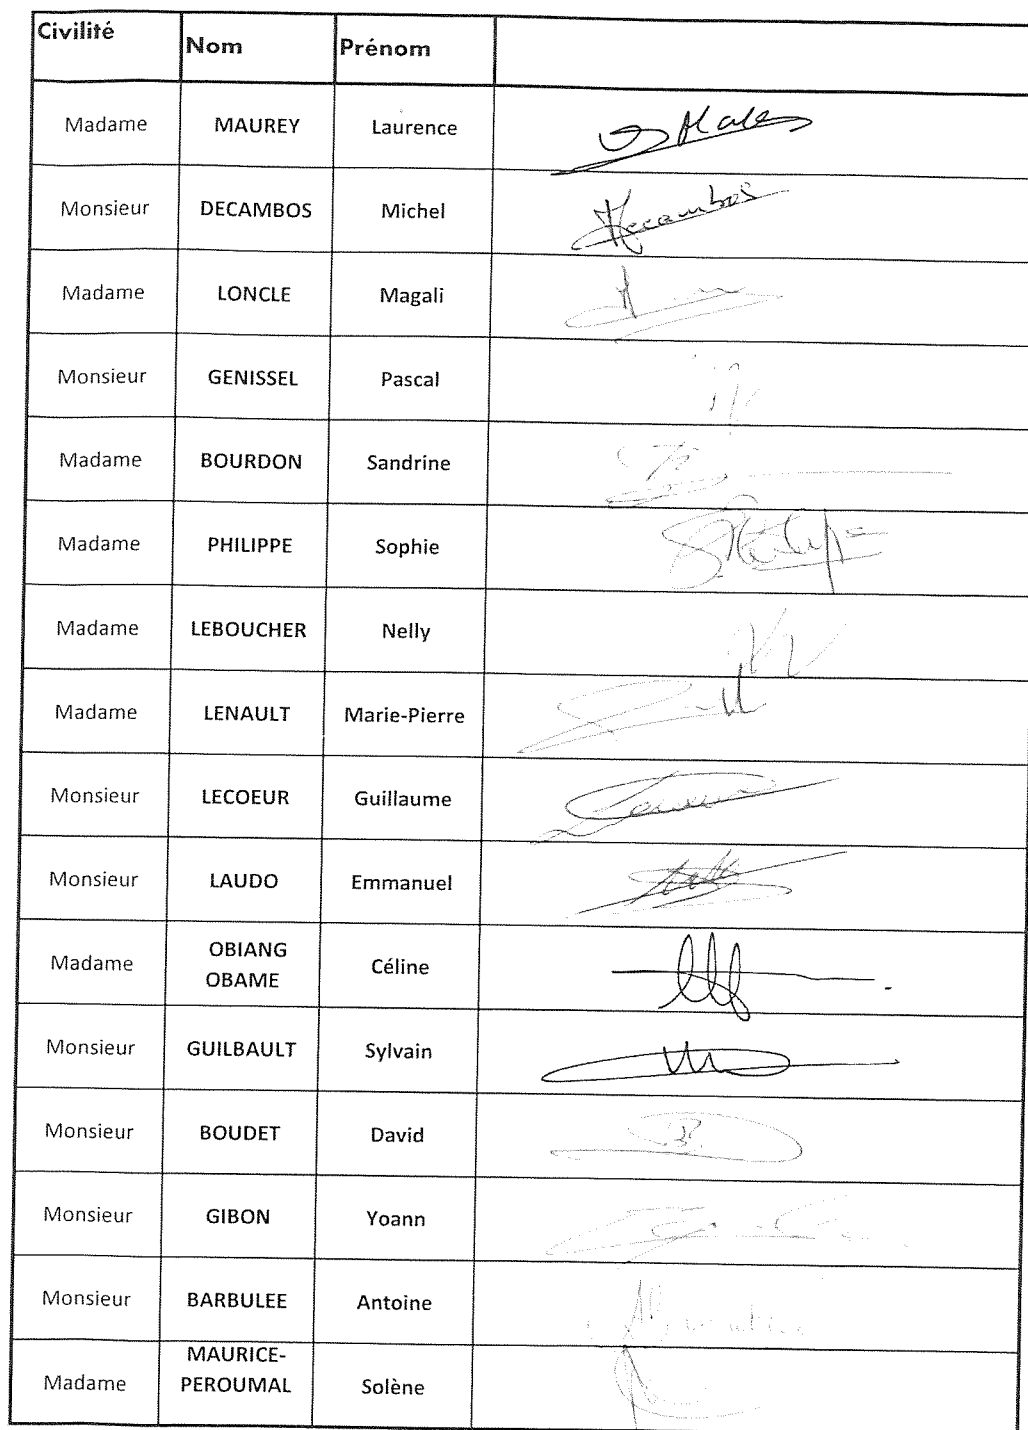 Civilité Nom Prénom
Madame MAUREY Laurence
Monsieur DECAMBOS Michel
Decambos
Madame LONCLE Magali
Monsieur GENISSEL Pascal
Madame BOURDON Sandrine
Madame PHILIPPE Sophie
Madame LEBOUCHER Nelly
Madame LENAULT Marie-Pierre
Monsieur LECOEUR Guillaume
Monsieur LAUDO Emmanuel
Madame OBIANG
OBAME Céline
Monsieur GUILBAULT Sylvain
Monsieur BOUDET David
Monsieur GIBON Yoann
Monsieur BARBULEE Antoine
Madame MAURICE-
PEROUMAL Solène